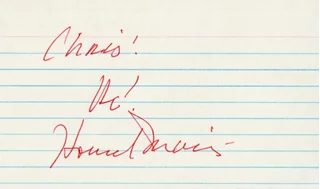 Chris!
Hi!
Howard Morris